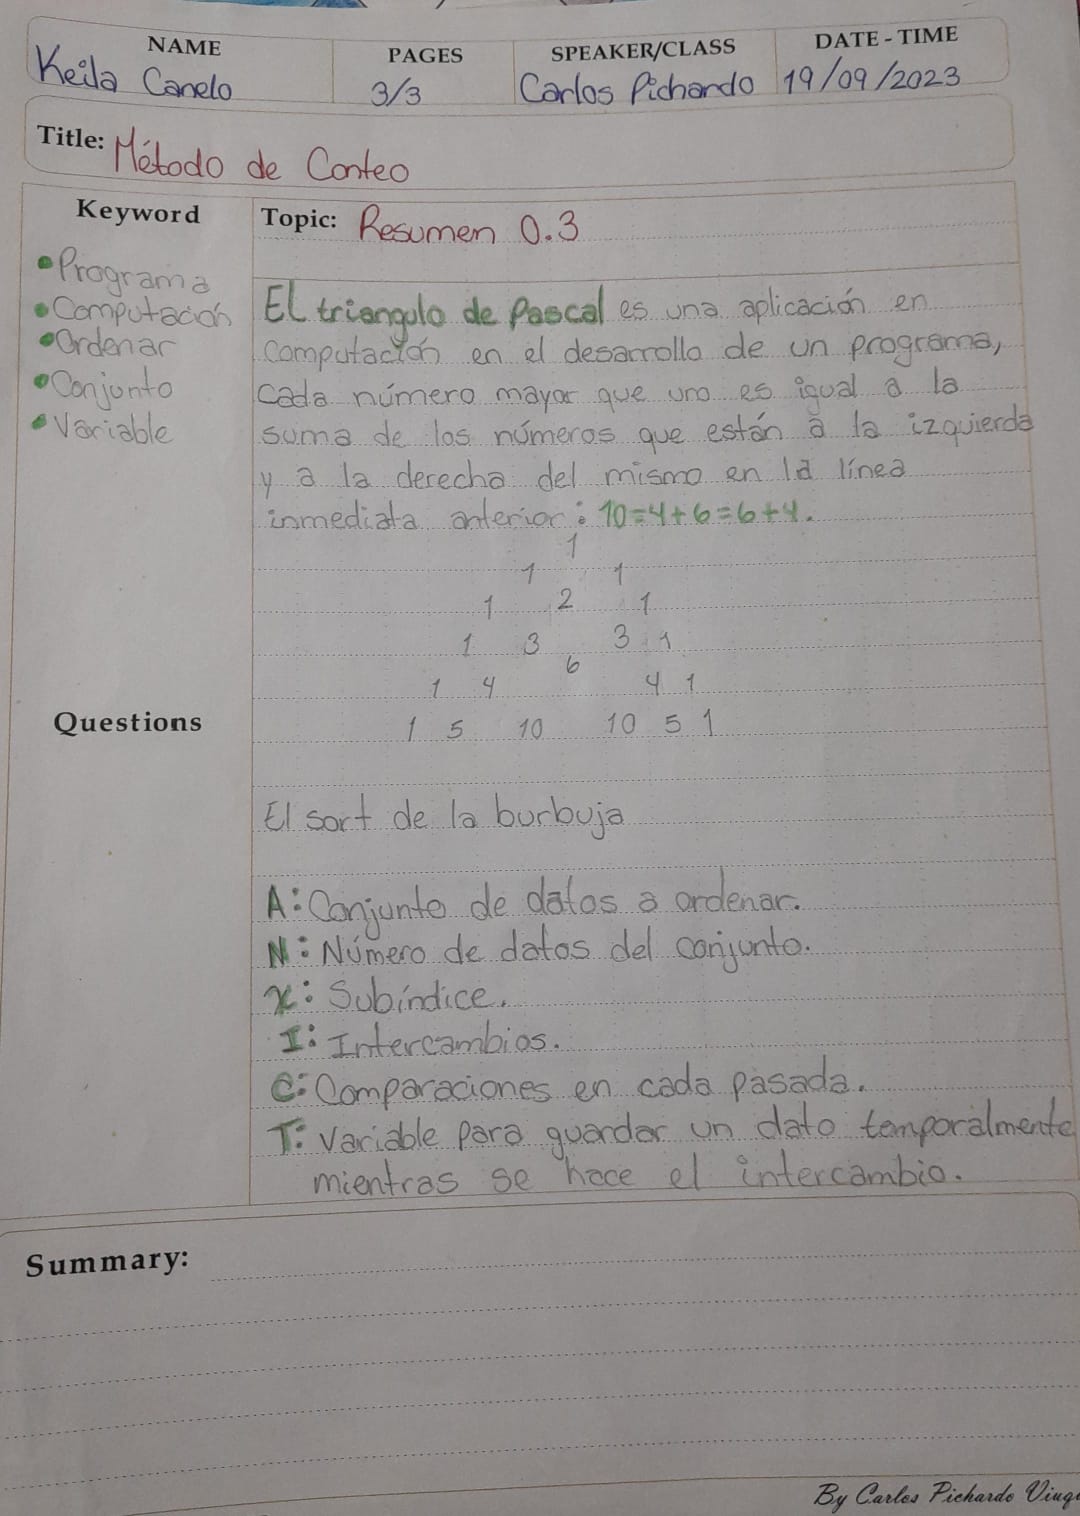 NAME PAGES SPEAKER/CLASS DATE - TIME
Keila Canelo 3/3 Carlos Pichardo 19/09/2023
Title: Método de Conteo
Keyword
• Programa
• Computación
• Ordenar
• Conjunto
• Variable
Topic: Resumen 0.3
El triangulo de Pascal es una aplicación en
computación en el desarrollo de un programa,
cada número mayor que uno es igual a la
suma de los números que están a la izquierda
y a la derecha del mismo en la línea
inmediata anterior: 10=4+6=6+4.
1
1 1
1 2 1
1 3 3 1
1 4 6 4 1
1 5 10 10 5 1
Questions
El sort de la burbuja
A: Conjunto de datos a ordenar.
N: Número de datos del conjunto.
x: Subíndice.
I: Intercambios.
C: Comparaciones en cada pasada.
T: Variable para guardar un dato temporalmente
mientras se hace el intercambio.
Summary:
By Carlos Pichardo